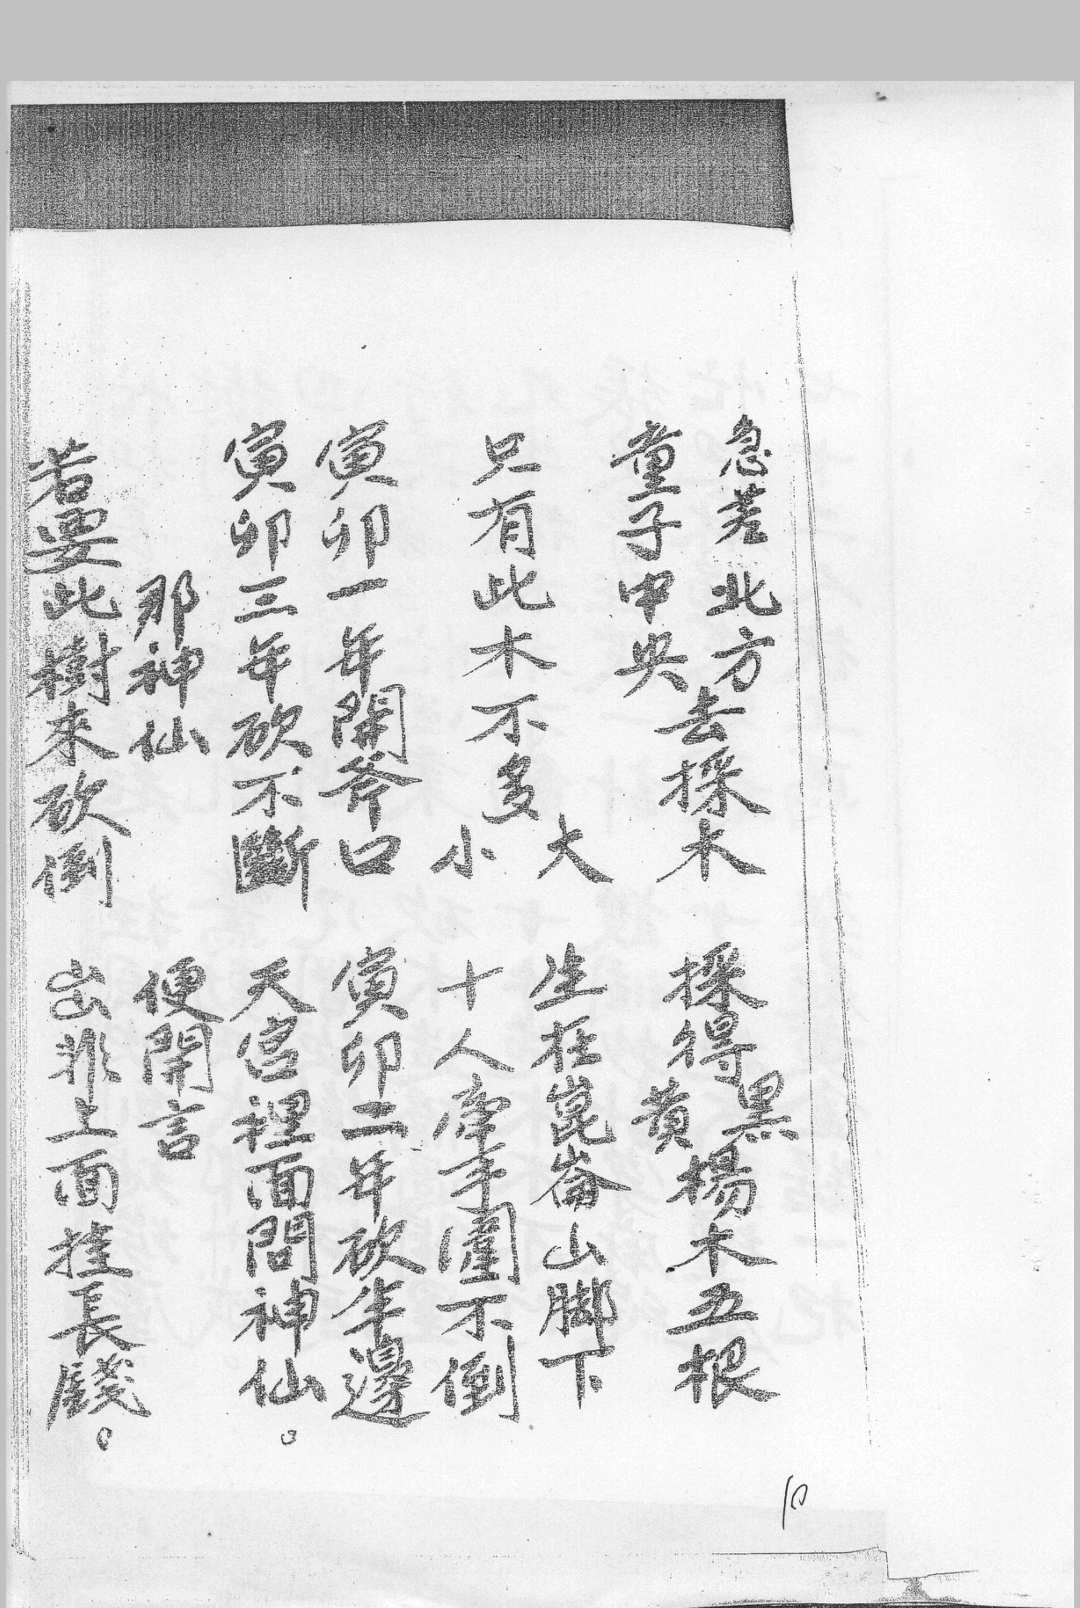 急差
童子
北方
中央
去採木
採得
黑
黃
楊木五根
只有此木不多
大
小
生在崑崙山脚下
十人牽手圍不倒
寅卯一年開斧口
寅卯二年砍半邊
寅卯三年砍不斷
天宮裡面問神仙。
那神仙
便開言
若要此樹來砍倒
出非上面挂長錢。
10